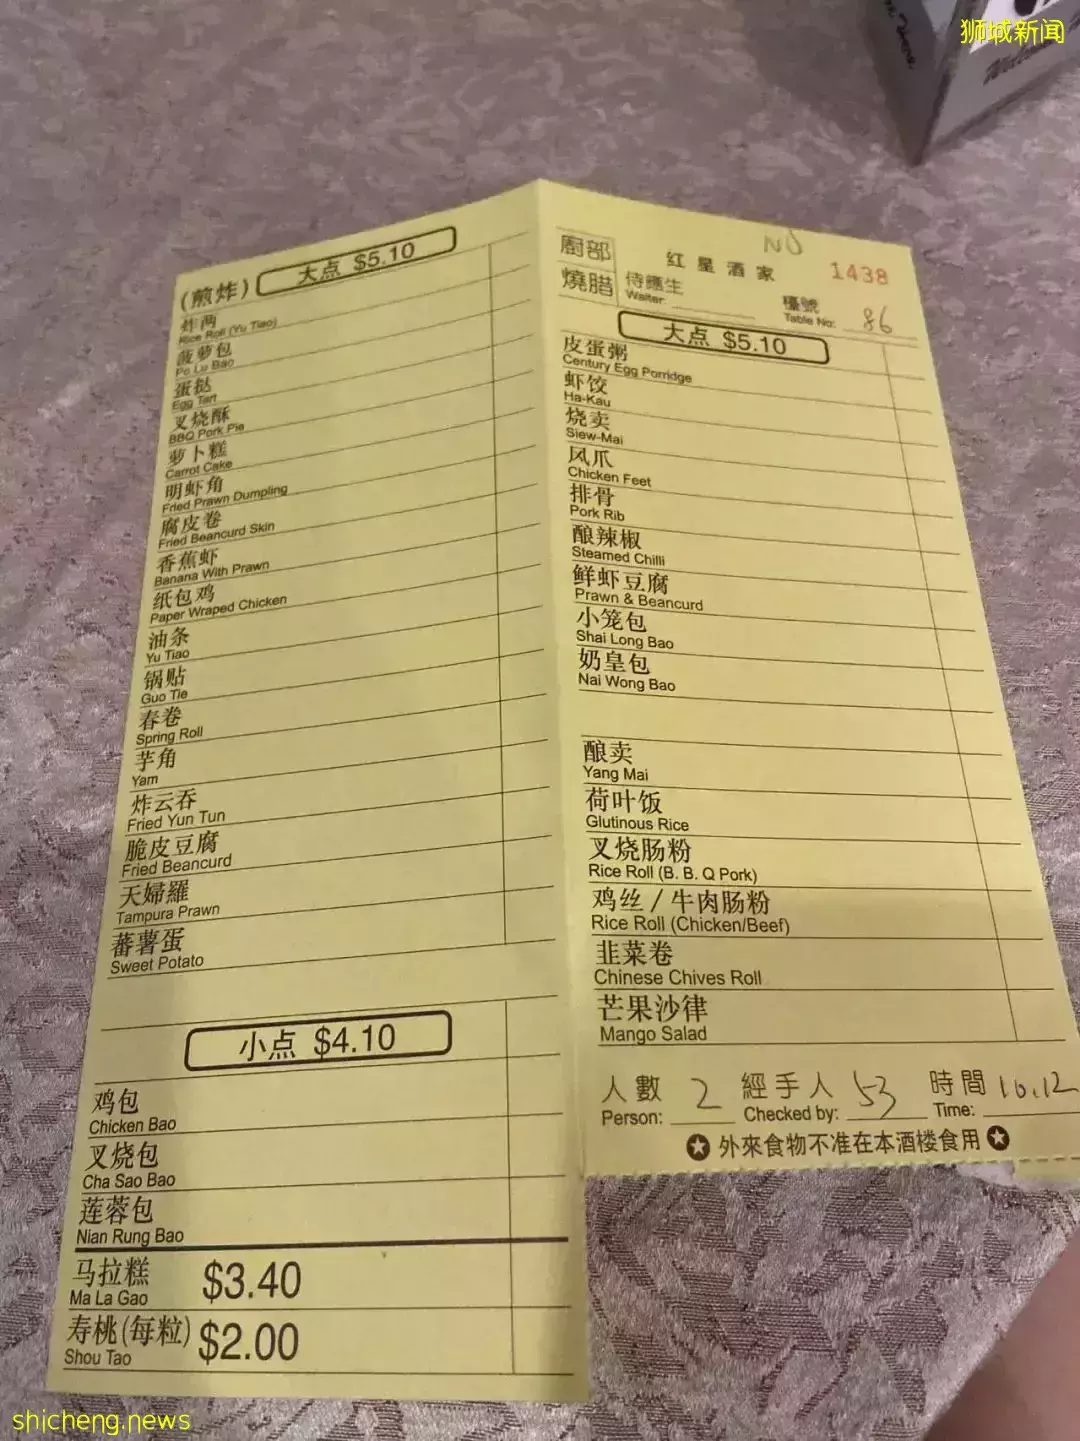 狮城新闻
(煎炸) 大点 $5.10
炸两
Rice Roll (Yu Tiao)
菠萝包
Po Lu Bao
蛋挞
Egg Tart
叉烧酥
BBQ Pork Pie
萝卜糕
Carrot Cake
明虾角
Fried Prawn Dumpling
腐皮卷
Fried Beancurd Skin
香蕉虾
Banana With Prawn
纸包鸡
Paper Wraped Chicken
油条
Yu Tiao
锅贴
Guo Tie
春卷
Spring Roll
芋角
Yam
炸云吞
Fried Yun Tun
脆皮豆腐
Fried Beancurd
天婦羅
Tampura Prawn
蕃薯蛋
Sweet Potato
小点 $4.10
鸡包
Chicken Bao
叉烧包
Cha Sao Bao
莲蓉包
Nian Rung Bao
马拉糕 $3.40
Ma La Gao
寿桃(每粒) $2.00
Shou Tao
厨部
燒腊
红星酒家 1438
侍應生
Waiter:
檯號
Table No: 86
大点 $5.10
皮蛋粥
Century Egg Porridge
虾饺
Ha-Kau
烧卖
Siew-Mai
凤爪
Chicken Feet
排骨
Pork Rib
酿辣椒
Steamed Chilli
鲜虾豆腐
Prawn & Beancurd
小笼包
Shai Long Bao
奶皇包
Nai Wong Bao
酿卖
Yang Mai
荷叶饭
Glutinous Rice
叉烧肠粉
Rice Roll (B. B. Q Pork)
鸡丝 / 牛肉肠粉
Rice Roll (Chicken/Beef)
韭菜卷
Chinese Chives Roll
芒果沙律
Mango Salad
人數 2 經手人 53 時間 10.12
Person: Checked by: Time:
外來食物不准在本酒楼食用
shicheng.news